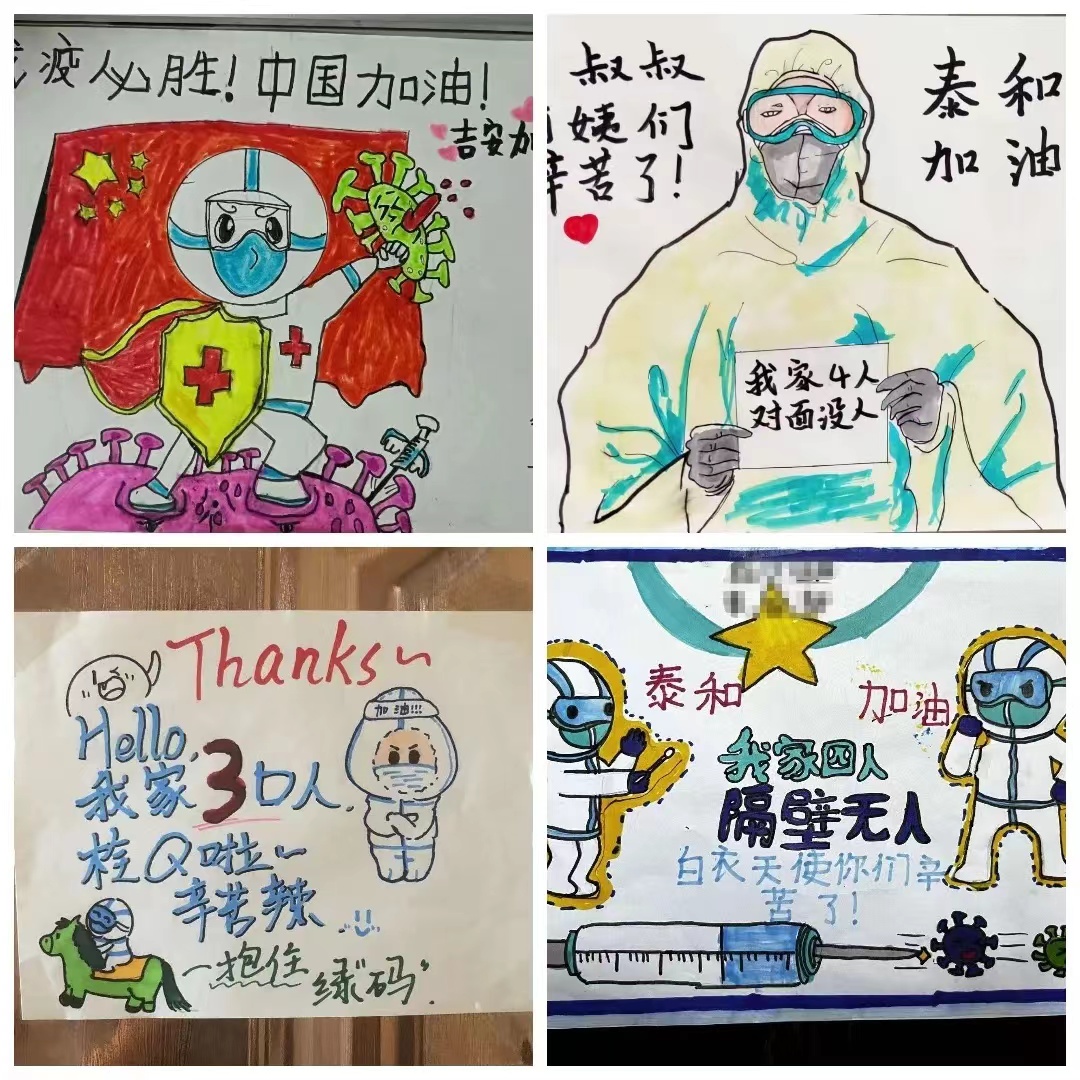 疫人必胜!中国加油!
吉安加
叔叔
姨们
辛苦了!
泰和
加油
我家4人
对面没人
Thanks~
加油!!!
Hello,
我家3口人,
栓Q啦~
辛苦辣
抱住绿码
泰和 加油
我家四人
隔壁无人
白衣天使你们辛
苦了!